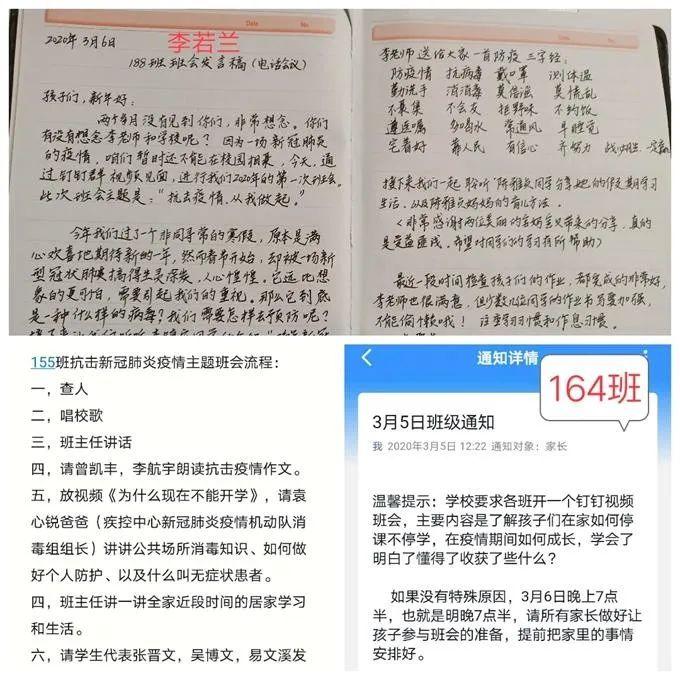 Date No.
2020年3月6日 李若兰
188班班会发言稿(电话会议)
孩子们,新年好:
两个多月没有见到你们,非常想念。你们
有没有想念李老师和学校呢?因为一场新冠肺炎
的疫情,咱们暂时还不能在校园相聚,今天,通
过钉钉群视频见面,进行我们2020年的第一次班会。
此次班会主题是:“抗击疫情,从我做起。”
今年我们过了一个非同寻常的寒假,原本是满
心欢喜地期待新的一年,然而春节开始,却被一场新
型冠状肺炎搞得生灵涂炭,人心惶惶。它远比想
象的更可怕,需要引起我们的重视。那么它到底
是一种什么样的病毒?我们需要怎样去预防呢?
Date No.
李老师送给大家一首防疫三字经:
防疫情 抗病毒 戴口罩 测体温
勤洗手 消消毒 莫信谣 莫慌乱
不聚集 不会友 拒野味 不约饭
遵医嘱 多喝水 常通风 早睡觉
宅着好 靠人民 有信心 齐努力
接下来我们一起聆听陈雅文同学分享她的假期学习
生活,以及陈雅文妈妈的育儿方法。
(非常感谢两位美丽的客妈文带来的分享,真的
是受益匪浅。希望对同学们的学习有所帮助)
最近一段时间检查孩子们的作业,都完成的非常好,
李老师也很满意,但少数几位同学的作业书写要加强,
不能偷懒哦!注意学习习惯和作息习惯。
155班抗击新冠肺炎疫情主题班会流程:
一,查人
二,唱校歌
三,班主任讲话
四,请曾凯丰,李航宇朗读抗击疫情作文。
五,放视频《为什么现在不能开学》,请袁
心锐爸爸(疾控中心新冠肺炎疫情机动队消
毒组组长)讲讲公共场所消毒知识、如何做
好个人防护、以及什么叫无症状患者。
四,班主任讲一讲全家近段时间的居家学习
和生活。
六,请学生代表张晋文,吴博文,易文溪发
通知详情
164班
3月5日班级通知
我 2020年3月5日 12:22 通知对象:家长
温馨提示:学校要求各班开一个钉钉视频
班会,主要内容是了解孩子们在家如何停
课不停学,在疫情期间如何成长,学会了
明白了懂得了收获了些什么?
如果没有特殊原因,3月6日晚上7点
半,也就是明晚7点半,请所有家长做好让
孩子参与班会的准备,提前把家里的事情
安排好。